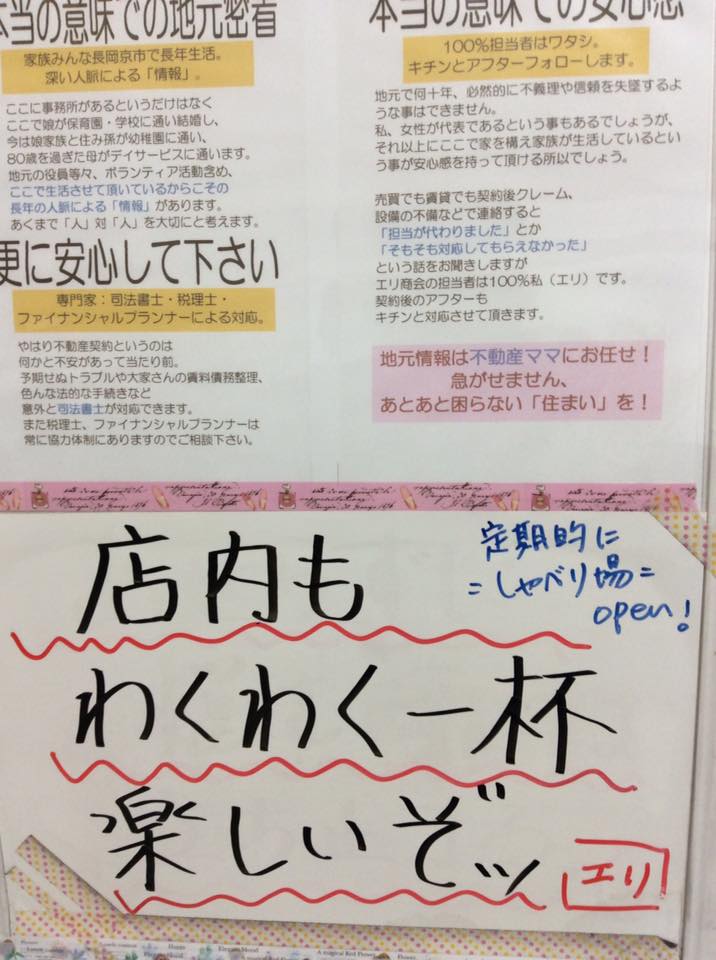 本当の意味での地元密着
家族みんな長岡京市で長年生活。
深い人脈による「情報」。
ここに事務所があるというだけはなく
ここで娘が保育園・学校に通い結婚し、
今は娘家族と住み孫が幼稚園に通い、
80歳を過ぎた母がデイサービスに通います。
地元の役員等々、ボランティア活動含め、
ここで生活させて頂いているからこその
長年の人脈による「情報」があります。
あくまで「人」対「人」を大切にと考えます。
更に安心して下さい
専門家：司法書士・税理士・
ファイナンシャルプランナーによる対応。
やはり不動産契約というのは
何かと不安があって当たり前。
予期せぬトラブルや大家さんの賃料債務整理、
色んな法的な手続きなど
意外と司法書士が対応できます。
また税理士、ファイナンシャルプランナーは
常に協力体制にありますのでご相談下さい。
本当の意味での安心感
100%担当者はワタシ。
キチンとアフターフォローします。
地元で何十年、必然的に不義理や信頼を失墜するよ
うな事はできません。
私、女性が代表であるという事もあるでしょうが、
それ以上にここで家を構え家族が生活しているとい
う事が安心感を持って頂ける所以でしょう。
売買でも賃貸でも契約後クレーム、
設備の不備などで連絡すると
「担当が代わりました」とか
「そもそも対応してもらえなかった」
という話をお聞きしますが
エリ商会の担当者は100%私（エリ）です。
契約後のアフターも
キチンと対応させて頂きます。
地元情報は不動産ママにお任せ！
急がせません、
あとあと困らない「住まい」を！
店内も
わくわく一杯
楽しいぞッ
エリ
定期的に
=しゃべり場=
open!